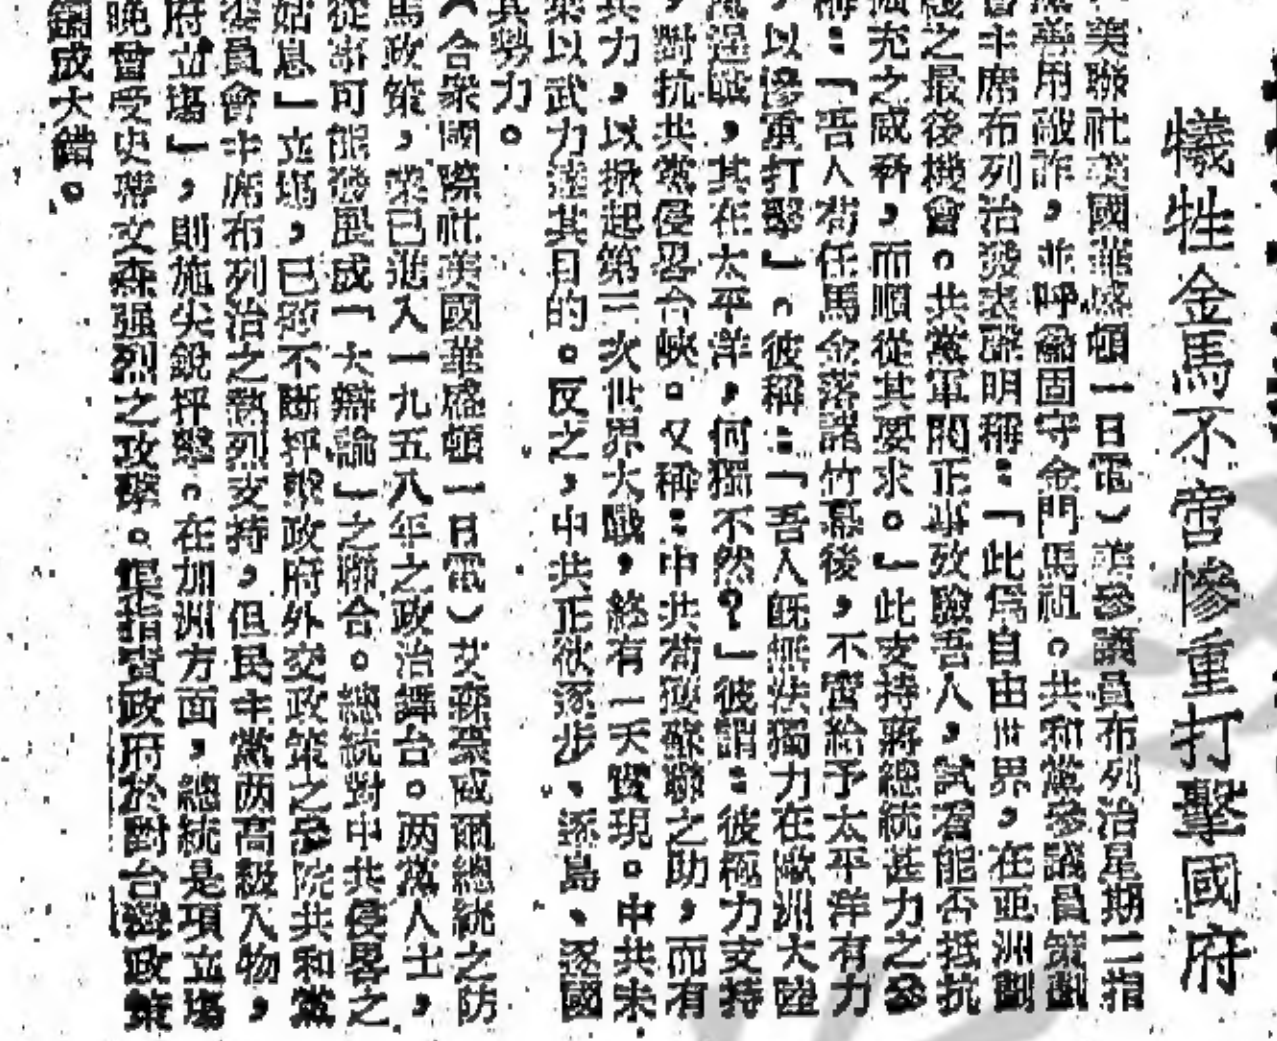 犧牲金馬不啻慘重打擊國府
美聯社美國華盛頓一日電︶美參議員布列治星期二指
善用敲詐，並呼籲固守金門馬祖。共和黨參議員策劃
會主席布列治發表聲明稱：「此爲自由世界，在亞洲劃
綫之最後機會。共黨軍閥正事攷驗吾人，試看能否抵抗
擴充之威脅，而順從其要求。」此支持蔣總統甚力之參
稱：「吾人苟任馬金落諸竹幕後，不啻給予太平洋有力
，以慘重打擊」。彼稱：「吾人旣無法獨力在歐洲大陸
逞戰，其在太平洋，何獨不然？」彼謂：彼極力支持
，對抗共黨侵畧台峽。又稱：中共苟獲蘇聯之助，而有
力，以掀起第三次世界大戰，終有一天實現。中共未
以武力達其目的。反之，中共正欲逐步、逐島、逐國
其勢力。
︵合衆國際社美國華盛頓一日電︶艾森豪威爾總統之防
馬政策，業已進入一九五八年之政治舞台。两黨人士，
從事可能發展成「大辯論」之聯合。總統對中共侵畧之
姑息」立塲，已惹不斷抨擊政府外交政策之參院共和黨
委員會主席布列治之熱烈支持，但民主黨两高級人物，
府立塲」，則施尖銳抨擊。在加洲方面，總統是項立塲
晚曾受史蒂文森强烈之攻擊。渠指責政府於對台灣政策
鑄成大錯。